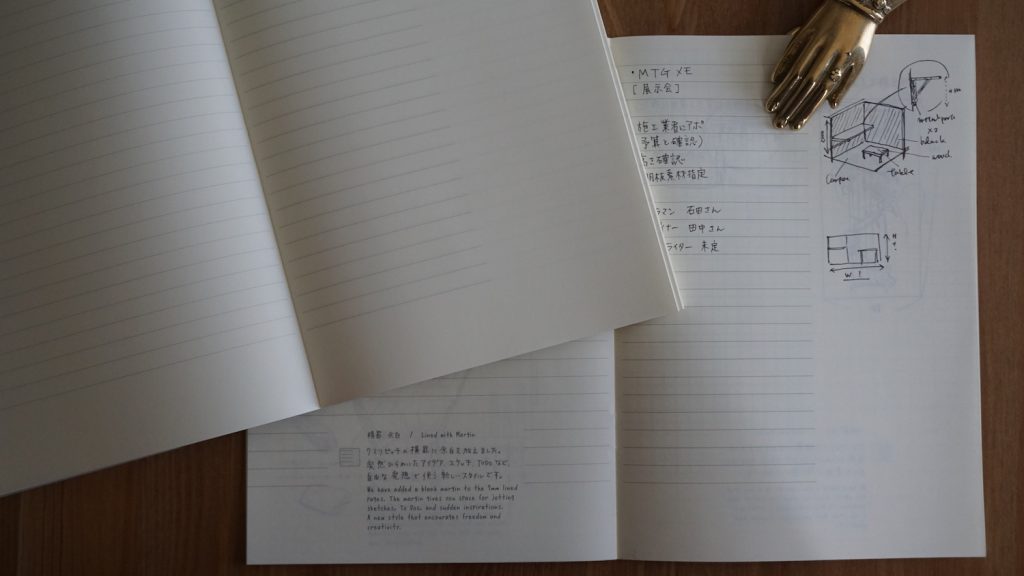 ・MTG メモ
[展示会]
施工業者にアポ
予算と確認)
高さ確認
用板素材指定
ラマン 石田さん
イナー 田中さん
ライター 未定
black
wood
table
W ?
横罫 余白 / Lined with Margin
横罫に余白を加えました。
突然ひらめいたアイデア、スケッチ、ToDoなど、
自由な発想で使う新しいスタイルです。
We have added a blank margin to the 7mm lined
pages. The margin gives you space for jotting
sketches, To Dos, and sudden inspirations.
A new style that encourages freedom and
creativity.